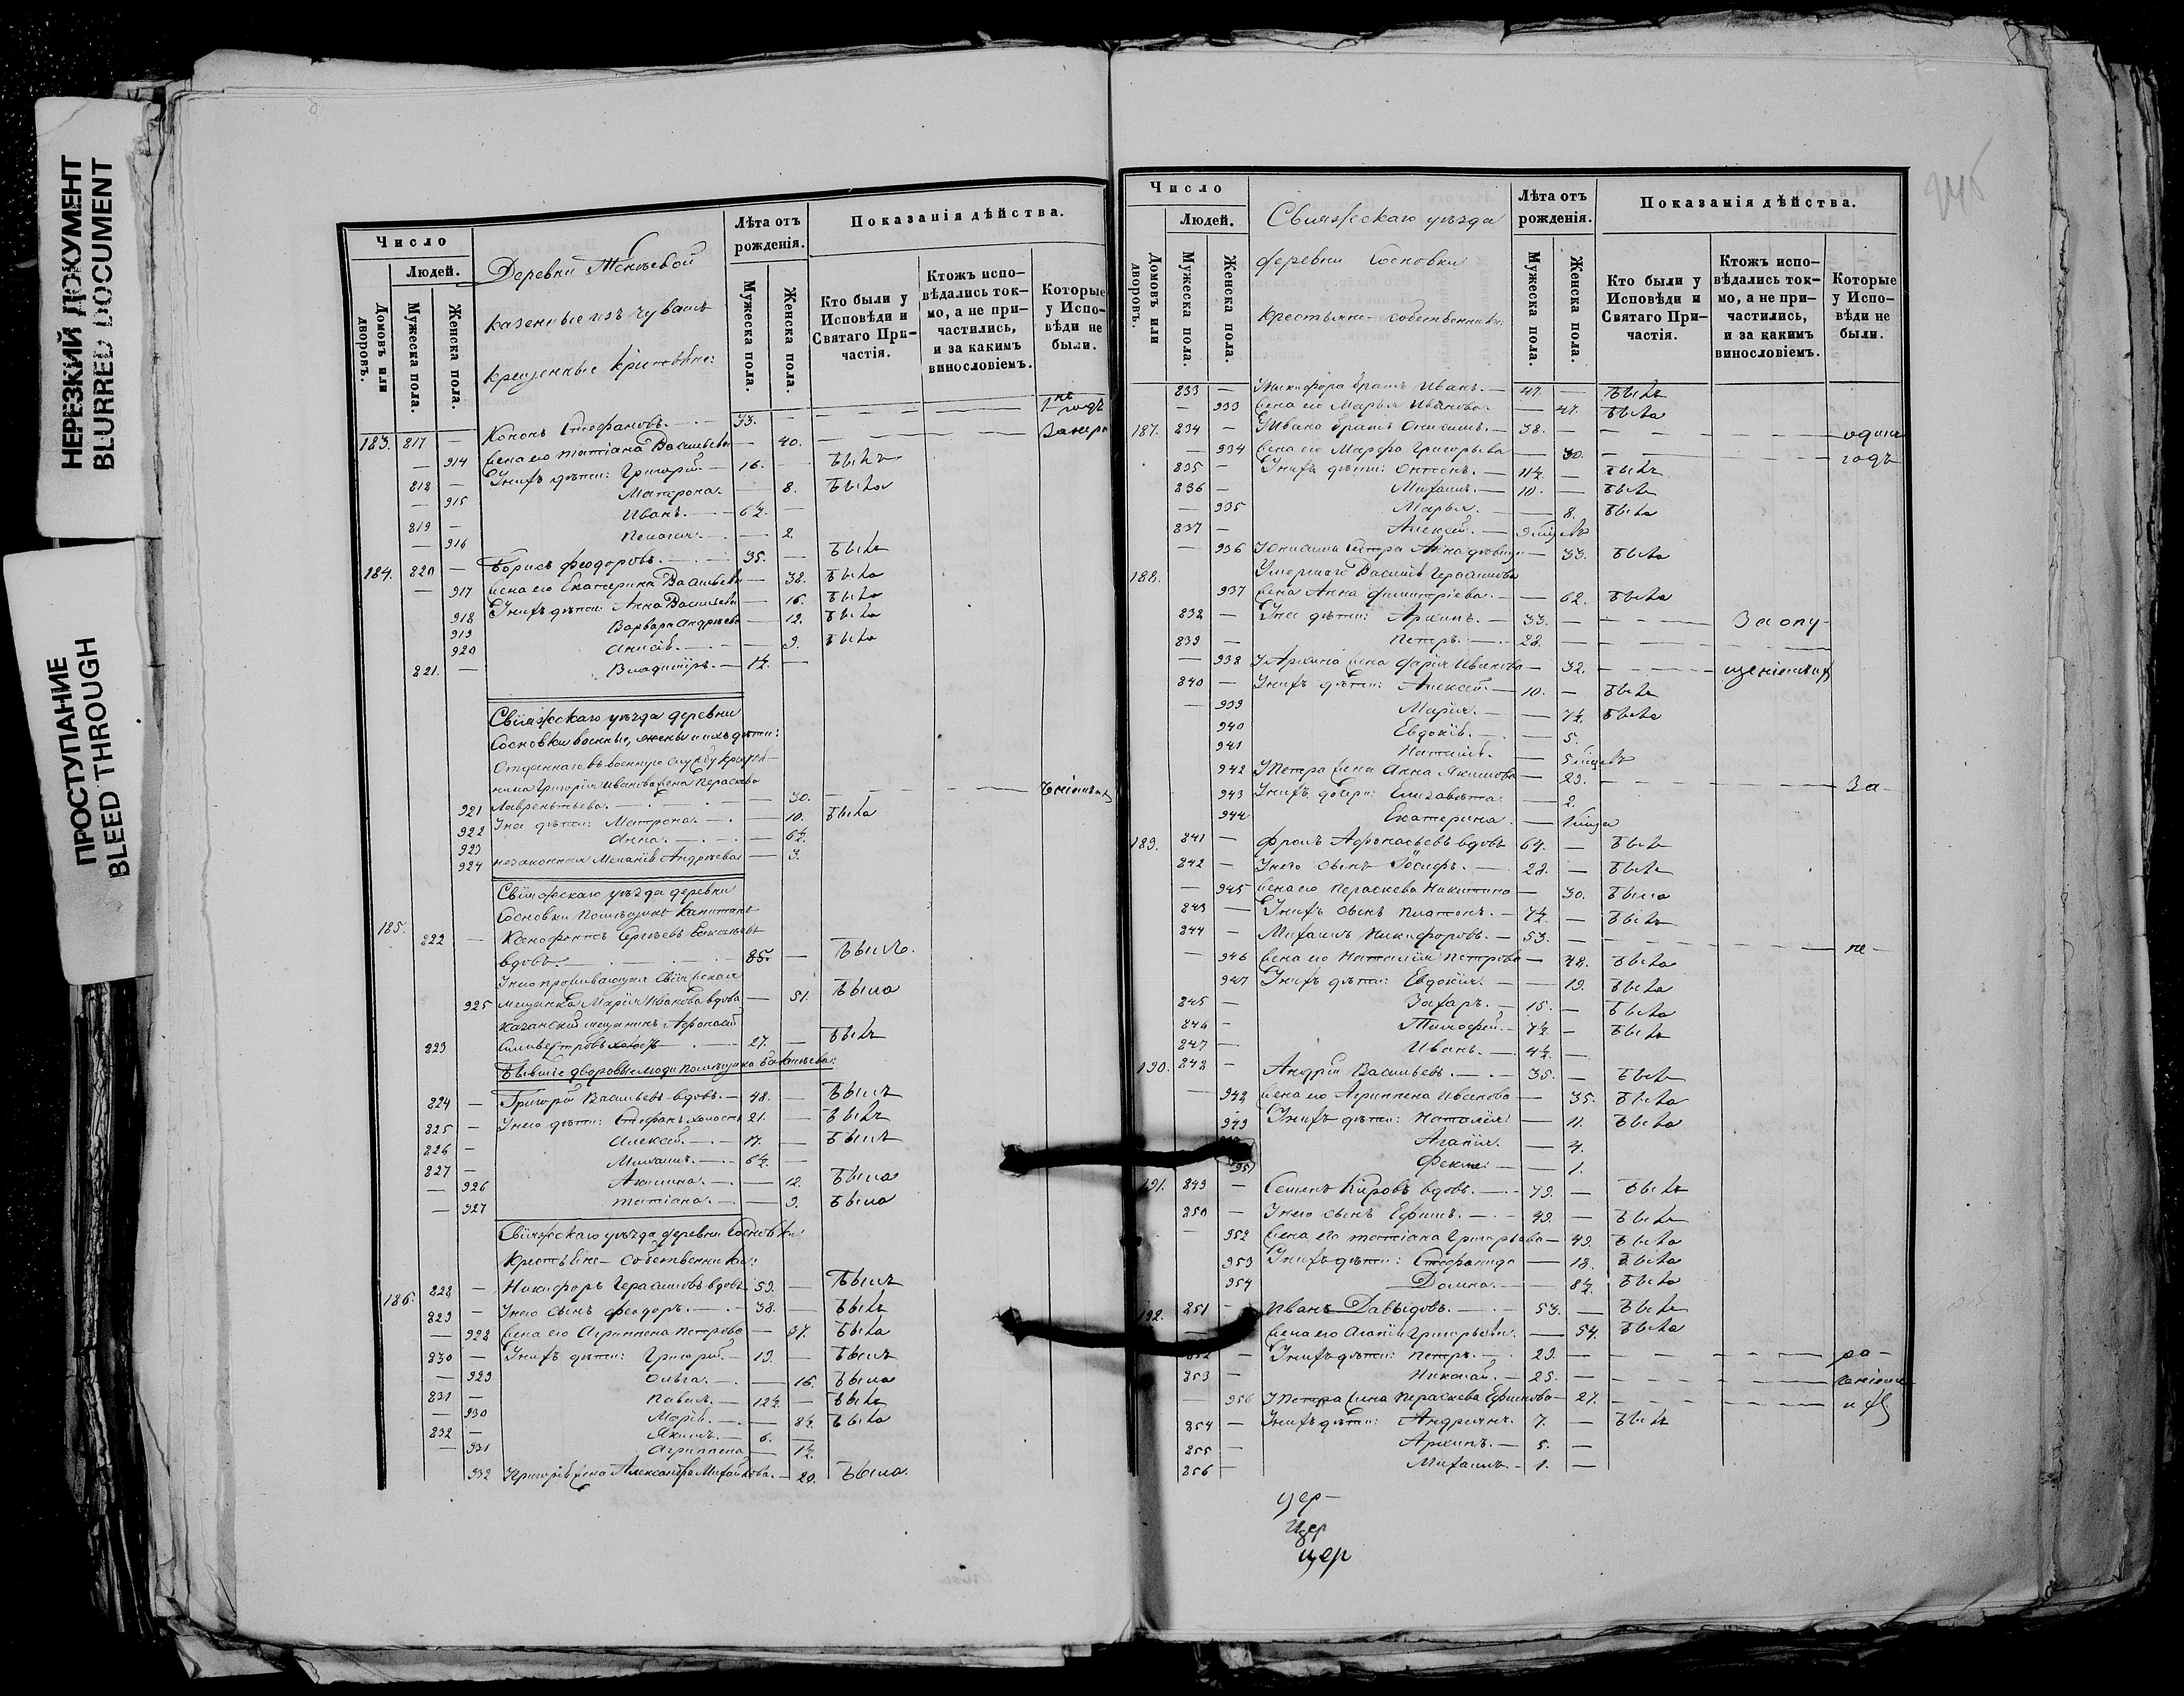 НЕРЕЗКИЙ ДОКУМЕНТ
BLURRED DOCUMENT
ПРОСТУПАНИЕ
BLEED THROUGH
Число
Людей.
Домовъ или дворовъ.
Мужеска пола.
Женска пола.
Деревни
казенные изъ чувашъ
крещенные крестьяне:
Лѣта отъ рожденія.
Мужеска пола.
Женска пола.
Показанія дѣйства.
Кто были у Исповѣди и Святаго Причастія.
Ктожъ исповѣдались токмо, а не причастились, и за какимъ винословіемъ.
Которые у Исповѣди не были.
183. 817 — Кононъ Стефановъ. — 33. —
— 914 жена его Татіана Васильева — 40.
818 — У нихъ дѣти: Григорій — 16. — былъ
— 915 Матрона. — 8. была
819 — Иванъ. — 6½. —
— 916 Пелагія. — 2.
184. 820 — Борисъ Феодоровъ. — 35. — былъ
— 917 жена его Екатерина Васильева — 38. была
918 У нихъ дѣти: Анна Васильева — 16. была
919 Варвара Андреева — 12. была
920 — 9. была
821. — Владиміръ. — 1½. —
Свіяжскаго уѣзда деревни
Сосновки военные, жены и ихъ дѣти:
Отданнаго въ военную службу
Григорія Иванова жена Параскева
921 Лаврентьева. — 30.
922 У нея дѣти: Матрона. — 10. была
923 Анна. — 6½.
924 незаконная Меланія Андреева — 3.
Свіяжскаго уѣзда деревни
Сосновки помѣщикъ капитанъ
185. 822 — Ксенофонтъ Сергѣевъ
вдовъ. — 85. — былъ.
У него проживающая Свіяжская
925 мещанка Марія Иванова вдова — 51. была
Казанскій мещанинъ Афонасій
823 Сильвестровъ холостъ — 27. — былъ
Бывшіе дворовые люди помѣщика
824 — Григорій Васильевъ вдовъ. — 48. — былъ
825 — У него дѣти: Стефанъ холостъ 21. — былъ
826 — Алексѣй. — 17. — былъ
827 — Михаилъ. — 6½. —
— 926 Акилина. — 12. была
— 927 Татіана. — 9. была
Свіяжскаго уѣзда деревни Сосновки
крестьяне-собственники:
186. 828 — Никифоръ Герасимовъ вдовъ 59. — былъ
829 — У него сынъ Феодоръ. — 38. — былъ
— 928 жена его Агриппена Петрова — 37. была
830 — У нихъ дѣти: Григорій. — 19. — былъ
— 929 Ольга. — 16. была
831 — Павелъ. — 12½. — былъ
— 930 Марія. — 8½. была
832 — Якимъ. — 6. —
— 931 Агриппена — 1½.
932 У Григорія жена Александра Михайлова. — 20. была.
Число
Людей.
Домовъ или дворовъ.
Мужеска пола.
Женска пола.
Свіяжскаго уѣзда
деревни Сосновки
крестьяне-собственники:
Лѣта отъ рожденія.
Мужеска пола.
Женска пола.
Показанія дѣйства.
Кто были у Исповѣди и Святаго Причастія.
Ктожъ исповѣдались токмо, а не причастились, и за какимъ винословіемъ.
Которые у Исповѣди не были.
833 — У Никифора братъ Иванъ. — 47. — былъ
— 933 жена его Марья Иванова — 47. была
187. 834 — У Ивана братъ Онисимъ. — 38. — одинъ
— 934 жена его Марфа Григорьева — 30. — годъ
835 — У нихъ дѣти: Антонъ. — 11½. — былъ
836 — Михаилъ. — 10. — былъ
— 935 Марья. — 8. была
837 — Алексѣй. —
— 936 У Онисима сестра Анна дѣвица — 33. была
188. Умершаго Василія Герасимова
937 жена Анна Димитріева. — 62. была
838 — У нея дѣти: Архипъ. — 33. — За опу-
839 — Петръ. — 28. —
— 938 У Архипа жена Дарія Иванова — 32. — щеніемъ
840 — У нихъ дѣти: Алексѣй. — 10. — былъ
— 939 Марія. — 7½. была
940 Евдокія. — 5.
941 Наталія. —
942 У Петра жена Анна Якимова — 23. — За
943 У нихъ дочери: Елизавета. — 2.
944 Екатерина. —
189. 841 — Фролъ Афонасьевъ вдовъ 64. — былъ
842 — У него сынъ Іосифъ. — 28. — былъ
— 945 жена его Параскева Никитина — 30. была
843 — У нихъ сынъ Платонъ. — 7½. — былъ
844 — Михаилъ Никифоровъ. — 53. — не
— 946 жена его Наталія Петрова — 48. была
— 947 У нихъ дѣти: Евдокія. — 19. была
845 — Захаръ. — 15. — была
846 — Тимофей. — 7½. — былъ
847 — Иванъ. — 4½. —
190. 848 — Андрей Васильевъ. — 35. — былъ
— 948 жена его Агриппена Иванова — 35. была
949 У нихъ дѣти: Наталія — 11. была
Агапія. — 4.
951 Фекла — 1.
191. 849 — Семенъ Кировъ вдовъ. — 79. — былъ
850 — У него сынъ Ефимъ. — 49. — былъ
— 952 жена его Татіана Григорьева — 49. была
953 У нихъ дѣти: Стефанида — 18. была
954 Домна. — 8½. была
192. 851 — Иванъ Давыдовъ. — 53. — былъ
жена его Агапія Григорьева. — 54. была
852 — У нихъ дѣти: Петръ. — 29. — ра-
853 — Николай. — 25. —
956 У Петра жена Параскева Ефимова — 27. —
854 — У нихъ дѣти: Андреянъ. 7. — былъ
855 — Архипъ. — 5. —
856 — Михаилъ. — 1. —
цер-
цер
цер